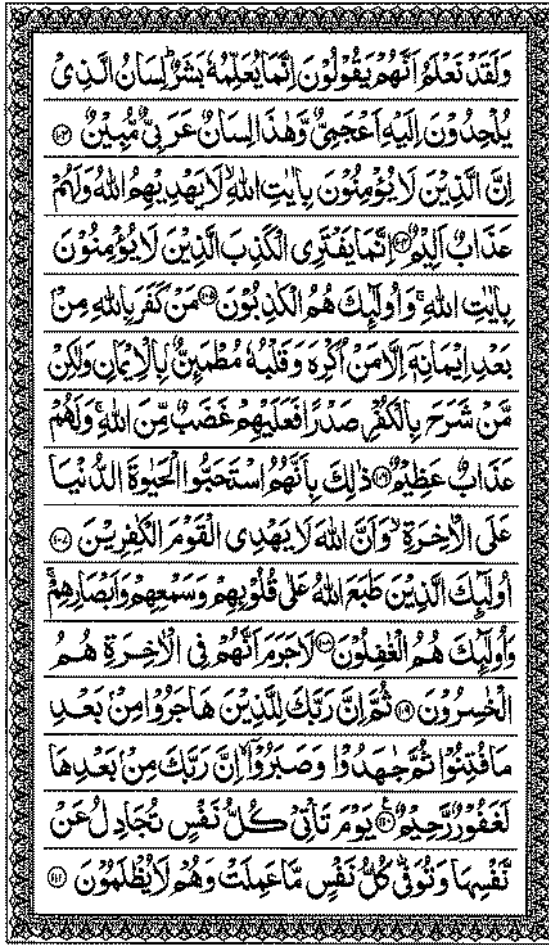 وَلَقَدْ نَعْلَمُ اَنَّهُمْ يَقُوْلُوْنَ اِنَّمَا يُعَلِّمُهٗ بَشَرٌ ؕ لِسَانُ الَّذِىْ
يُلْحِدُوْنَ اِلَيْهِ اَعْجَمِىٌّ وَّهٰذَا لِسَانٌ عَرَبِىٌّ مُّبِيْنٌ ﴿۱۰۳﴾
اِنَّ الَّذِيْنَ لَا يُؤْمِنُوْنَ بِاٰيٰتِ اللّٰهِ ۙ لَا يَهْدِيْهِمُ اللّٰهُ وَلَهُمْ
عَذَابٌ اَلِيْمٌ ﴿۱۰۴﴾ اِنَّمَا يَفْتَرِى الْكَذِبَ الَّذِيْنَ لَا يُؤْمِنُوْنَ
بِاٰيٰتِ اللّٰهِ ۚ وَاُولٰٓئِكَ هُمُ الْكٰذِبُوْنَ ﴿۱۰۵﴾ مَنْ كَفَرَ بِاللّٰهِ مِنْۢ
بَعْدِ اِيْمَانِهٖۤ اِلَّا مَنْ اُكْرِهَ وَقَلْبُهٗ مُطْمَٮِٕنٌّۢ بِالْاِيْمَانِ وَلٰكِنْ
مَّنْ شَرَحَ بِالْكُفْرِ صَدْرًا فَعَلَيْهِمْ غَضَبٌ مِّنَ اللّٰهِ ۚ وَلَهُمْ
عَذَابٌ عَظِيْمٌ ﴿۱۰۶﴾ ذٰلِكَ بِاَنَّهُمُ اسْتَحَبُّوا الْحَيٰوةَ الدُّنْيَا
عَلَى الْاٰخِرَةِ ۙ وَاَنَّ اللّٰهَ لَا يَهْدِى الْقَوْمَ الْكٰفِرِيْنَ ﴿۱۰۷﴾
اُولٰٓئِكَ الَّذِيْنَ طَبَعَ اللّٰهُ عَلٰى قُلُوْبِهِمْ وَسَمْعِهِمْ وَاَبْصَارِهِمْ ۚ
وَاُولٰٓئِكَ هُمُ الْغٰفِلُوْنَ ﴿۱۰۸﴾ لَا جَرَمَ اَنَّهُمْ فِى الْاٰخِرَةِ هُمُ
الْخٰسِرُوْنَ ﴿۱۰۹﴾ ثُمَّ اِنَّ رَبَّكَ لِلَّذِيْنَ هَاجَرُوْا مِنْۢ بَعْدِ
مَا فُتِنُوْا ثُمَّ جٰهَدُوْا وَصَبَرُوْۤا ۙ اِنَّ رَبَّكَ مِنْۢ بَعْدِهَا
لَغَفُوْرٌ رَّحِيْمٌ ﴿۱۱۰﴾ يَوْمَ تَاْتِىْ كُلُّ نَفْسٍ تُجَادِلُ عَنْ
نَّفْسِهَا وَتُوَفّٰى كُلُّ نَفْسٍ مَّا عَمِلَتْ وَهُمْ لَا يُظْلَمُوْنَ ﴿۱۱۱﴾